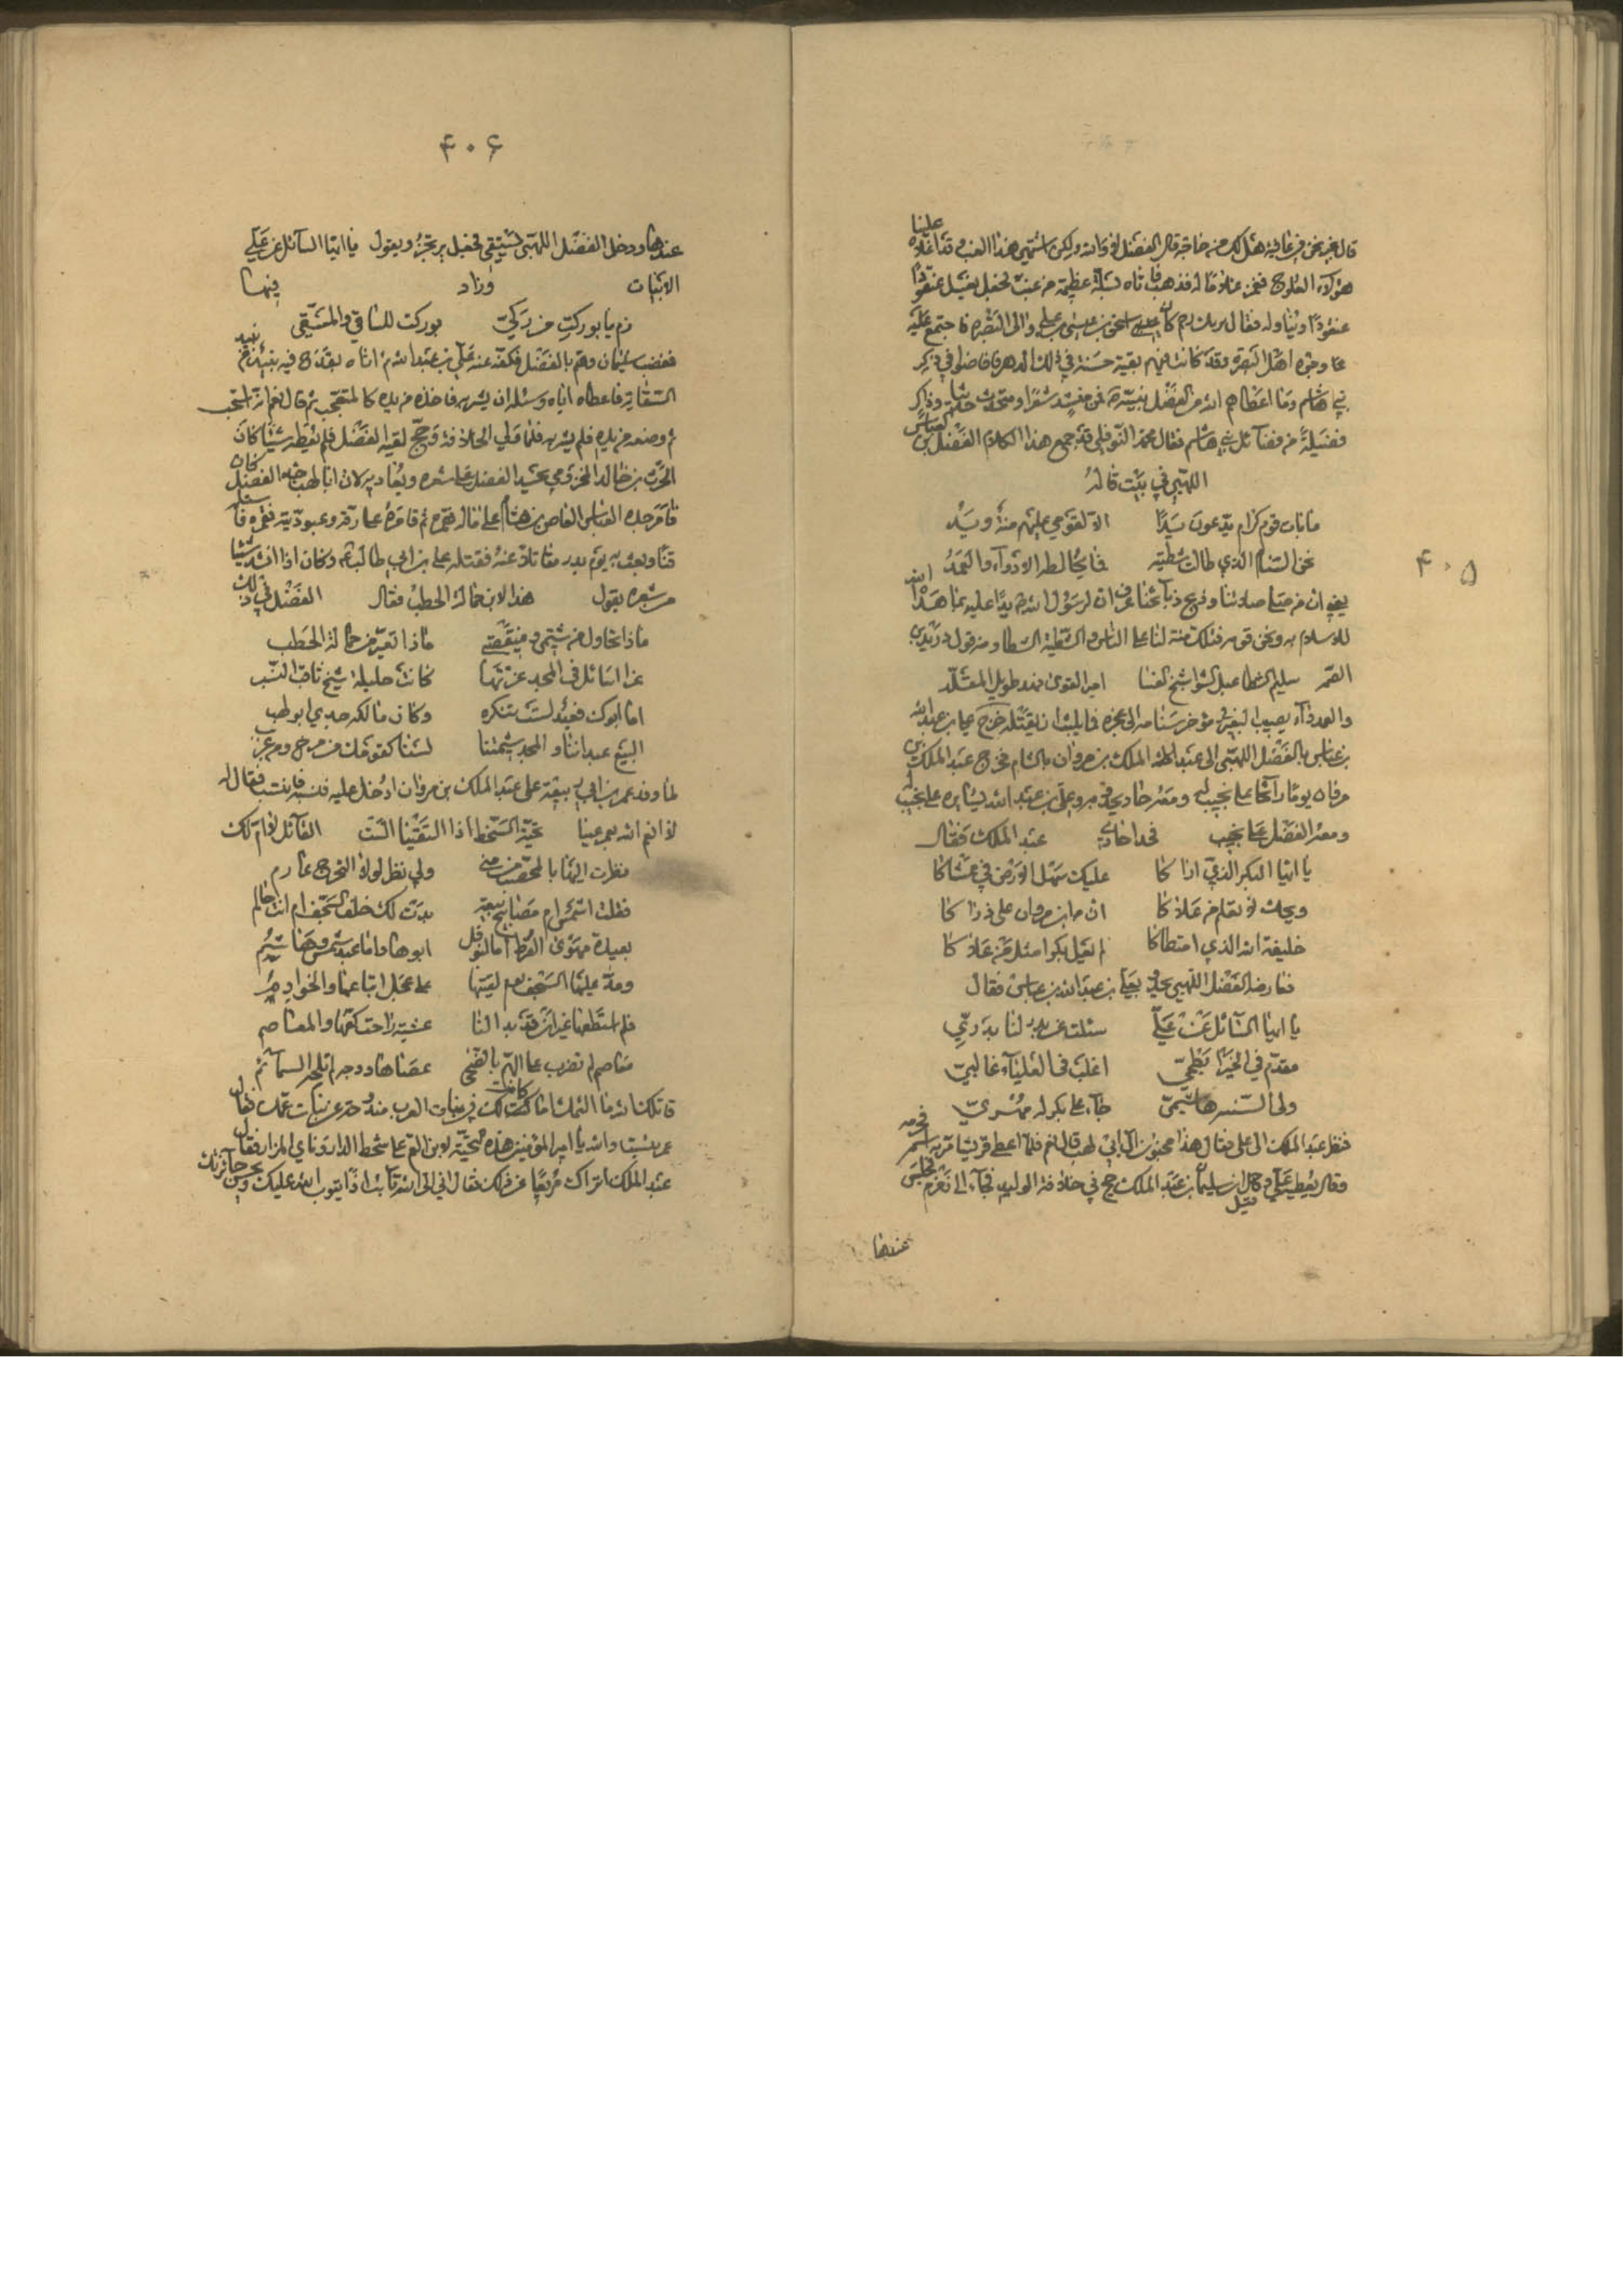 ۴۰۵
علينا
قال بخير نحن في عافية هل لك من حاجة قال الفضل لا والله ولكن اشتهي هذا العنب وقد اغلاه
هؤلاء العلوج فغمز غلاماً له فذهب فاتاه بسلة عظيمة من عنب فجعل يغسل عنقوداً
عنقوداً ويناوله فقال بر بك رحم كان عيسى اسحق بن عيسى بن علي والي البصرة فاجتمع عليه
وجوه اهل البصرة وقد كانت فيهم بقية حسنة في ذلك الدهر فافاضوا في ذكر
بني هاشم وما اعطاهم الله من الفضل بنبيه فمن منشد شعرا ومتحدث حديثا وذاكر
فضيلة من فضائل بني هاشم فقال محمد النوفلي قد جمع هذا الكلام الفضل بن العباس
اللهبي في بيت قاله
ما بات قوم كرام يدعون يدا الا لقومي عليهم منة ويد
نحن السنام الذي طالت شظيته فما يخالطه الادواء والعمد
يعني ان من صلى صلاتنا وذبح ذبائحنا عرف ان لرسول الله يدا عليه بما هداه الله
للاسلام به ونحن قومه فتلك منة لنا على الناس والشظية الشظا ومنه قول دريد بن
الصمة سليم الشظا عبل الشوا شنج النسا امين القوى نهد طويل المقلد
والعمد داء يصيب البعير في مؤخر سنامه الى عجزه فلا يلبث ان يقتله خرج علي بن عبد الله
بن عباس بالفضل اللهبي الى عبد الملك بن مروان بالشام فخرج عبد الملك بن
مروان يوماً رائحا على نجيب له ومعه حاد يحدو به وعلي بن عبد الله يسايره على نجيب له
ومعه الفضل على نجيب فحدا حادي عبد الملك فقال
يا ايها البكر الذي اراكا عليك سهل الارض في ممشاكا
ويحك لو تعلم من علاكا ان ابن مروان على ذراكا
خليفة الله الذي امتطاكا لم يعل بكرا مثل من علاكا
فعارضه الفضل اللهبي يحدو بعلي بن عبد الله بن عباس فقال
يا ايها السائل عن علي سئلت عن بدر لنا بدري
مقدم في الخير ابطحي اغلب في العلياء غالبي
ولين الشيمة هاشمي جاء على بكر له مهري
فنظر عبد الملك الى علي فقال هذا مجنون آل ابي لهب قال نعم فلما اعطى قريشا مر به اسمه فحرمه
وقال يعطيه علي قيل وحج سليمان بن عبد الملك في خلافة الوليد فجاء الى زمزم فجلس
عندها
۴۰۶
عندها ودخل الفضل اللهبي يستقي فجعل يرتجز ويقول يا ايها السائل عن علي
الابيات وزاد فيها
زمزم يا بوركت من ركي بوركت للساقي والمستقي
فغضب سليمان وهم بالفضل فكفه عنه علي بن عبد الله ثم اتاه بقدح فيه نبيذ من نبيذ
السقاية فاعطاه اياه وسئله ان يشربه فاخذه من يده كالمتعجب ثم قال نعم انه يستحب
ووضعه من يده فلم يشربه فلما ولي الخلافة وحج لقيه الفضل فلم يعطه شيئا كان
الحرث بن خالد المخزومي يحسد الفضل على شعره ويعاديه لان ابا لهب جد الفضل كان
قامر جده العاص بن هشام على ماله فقمره ثم قامره على رقه وعبوديته فقمره فاسلمه
قينا وبعث به يوم بدر مقاتلا عنه فقتله علي بن ابي طالب وكان اذا انشد شيئا
من شعره يقول هذا لابن حمالة الحطب فقال الفضل في ذلك
ماذا تحاول من شتمي ومنقصتي ماذا تعير من حمالة الحطب
غراء سائلة في المجد غرتها كانت حليلة شيخ ثاقب النسب
اما ابوك فعبد لست تنكره وكان مالكه جدي ابو لهب
لما وفد عمر بن ابي ربيعة على عبد الملك بن مروان ادخل عليه فسئله فانتسب فقال له
لا انعم الله بعمر عينا تحية السخط اذا التقينا الست القائل لا ام لك
نظرت اليها بالمحصب من منى ولي نظر لولا التحرج عارم
فقلت اشمس ام مصابيح بيعة بدت لك خلف السجف ام انت حالم
بعيدة مهوى القرط اما لنوفل ابوها واما عبد شمس وهاشم
ومد عليها السجف يوم لقيتها على عجل اتباعها والخوادم
فلم استطعها غير ان قد بدا لنا عشية راحت كفها والمعاصم
معاصم لم تضرب على البهم بالضحى عصاها ووجه لم تلحه السمائم
قاتلك الله ما الامك اما كانت لك في بنات العرب مندوحة عن بنات عمك فقال
عمر بئست والله يا امير المؤمنين هذه التحية لابن العم على شحط الدار وناي المزار فقال
عبد الملك اتراك مرتدعا عن ذلك فقال اني الى الله تائب اذا يتوب الله عليك ويحسن جائزتك